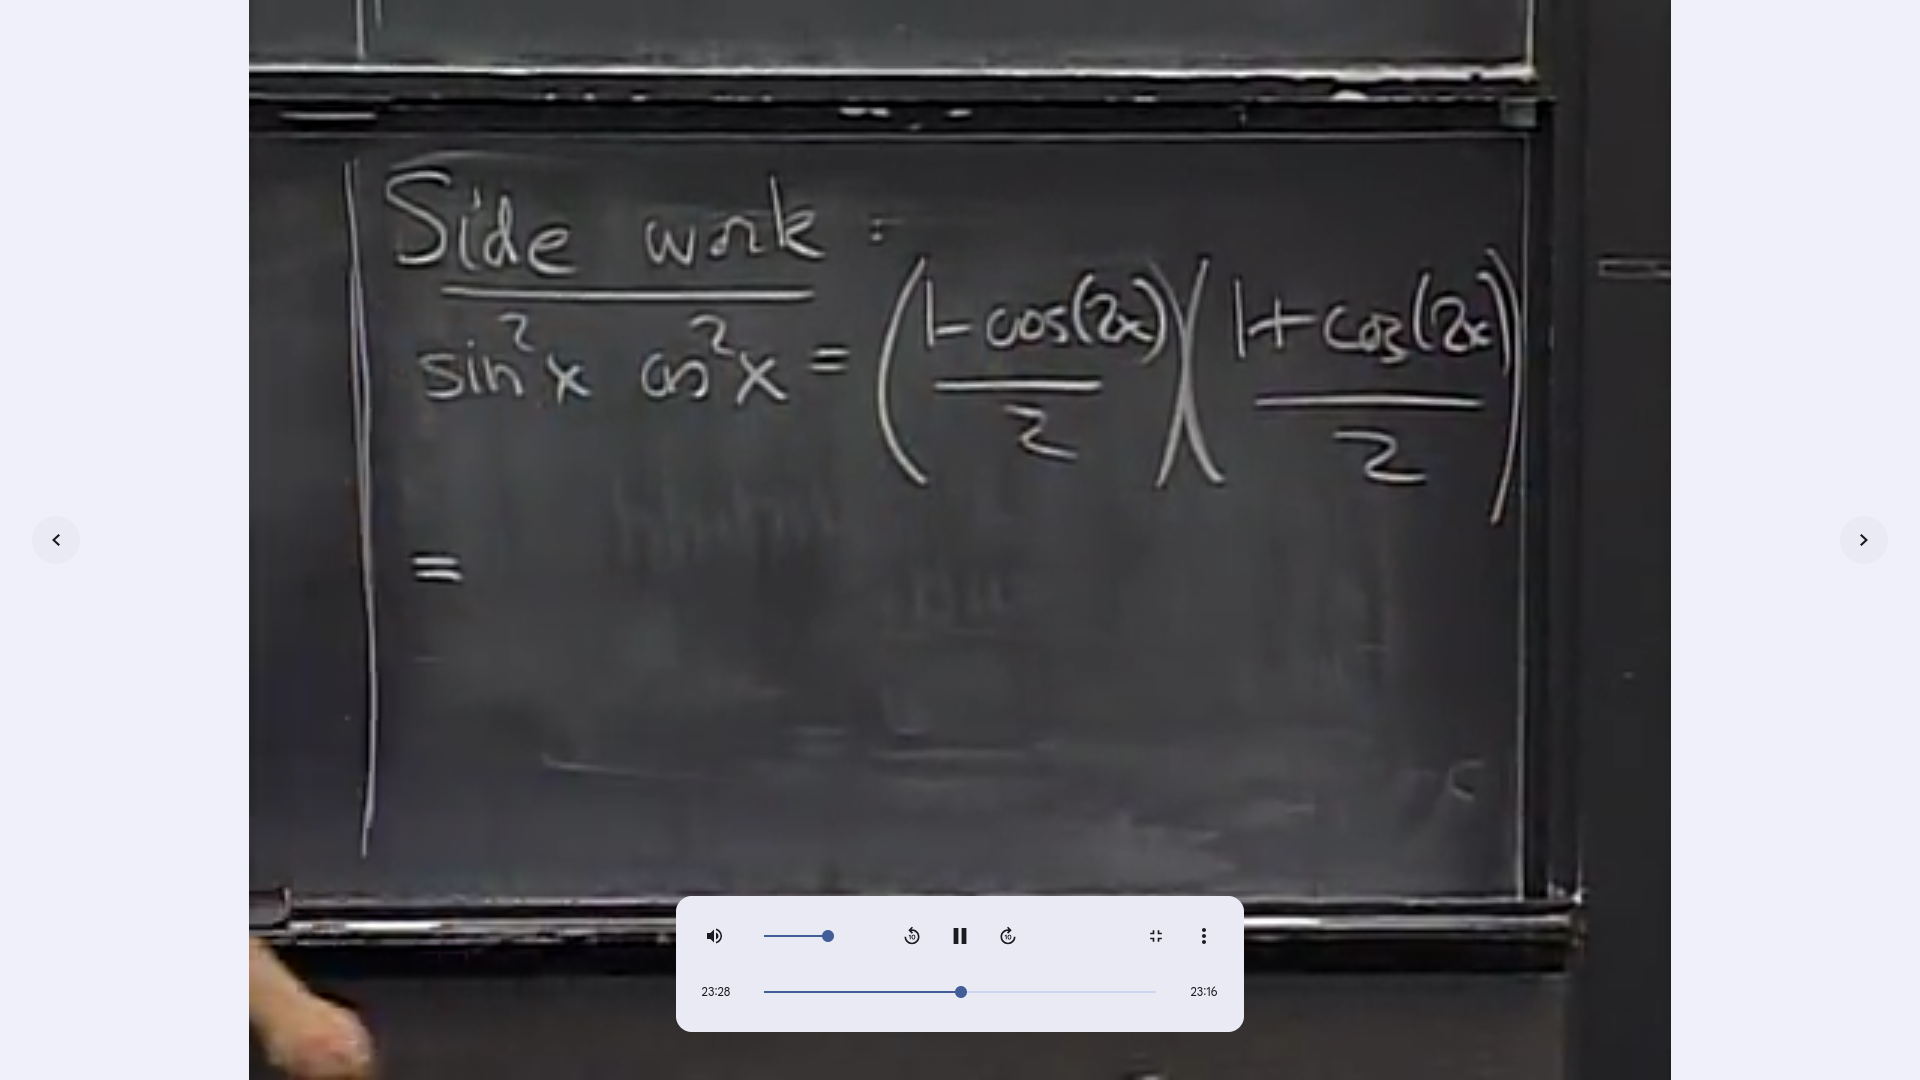 Side work :
sin²x cos²x = ((1 - cos(2x))/2)((1 + cos(2x))/2)
=
10
10
23:28
23:16